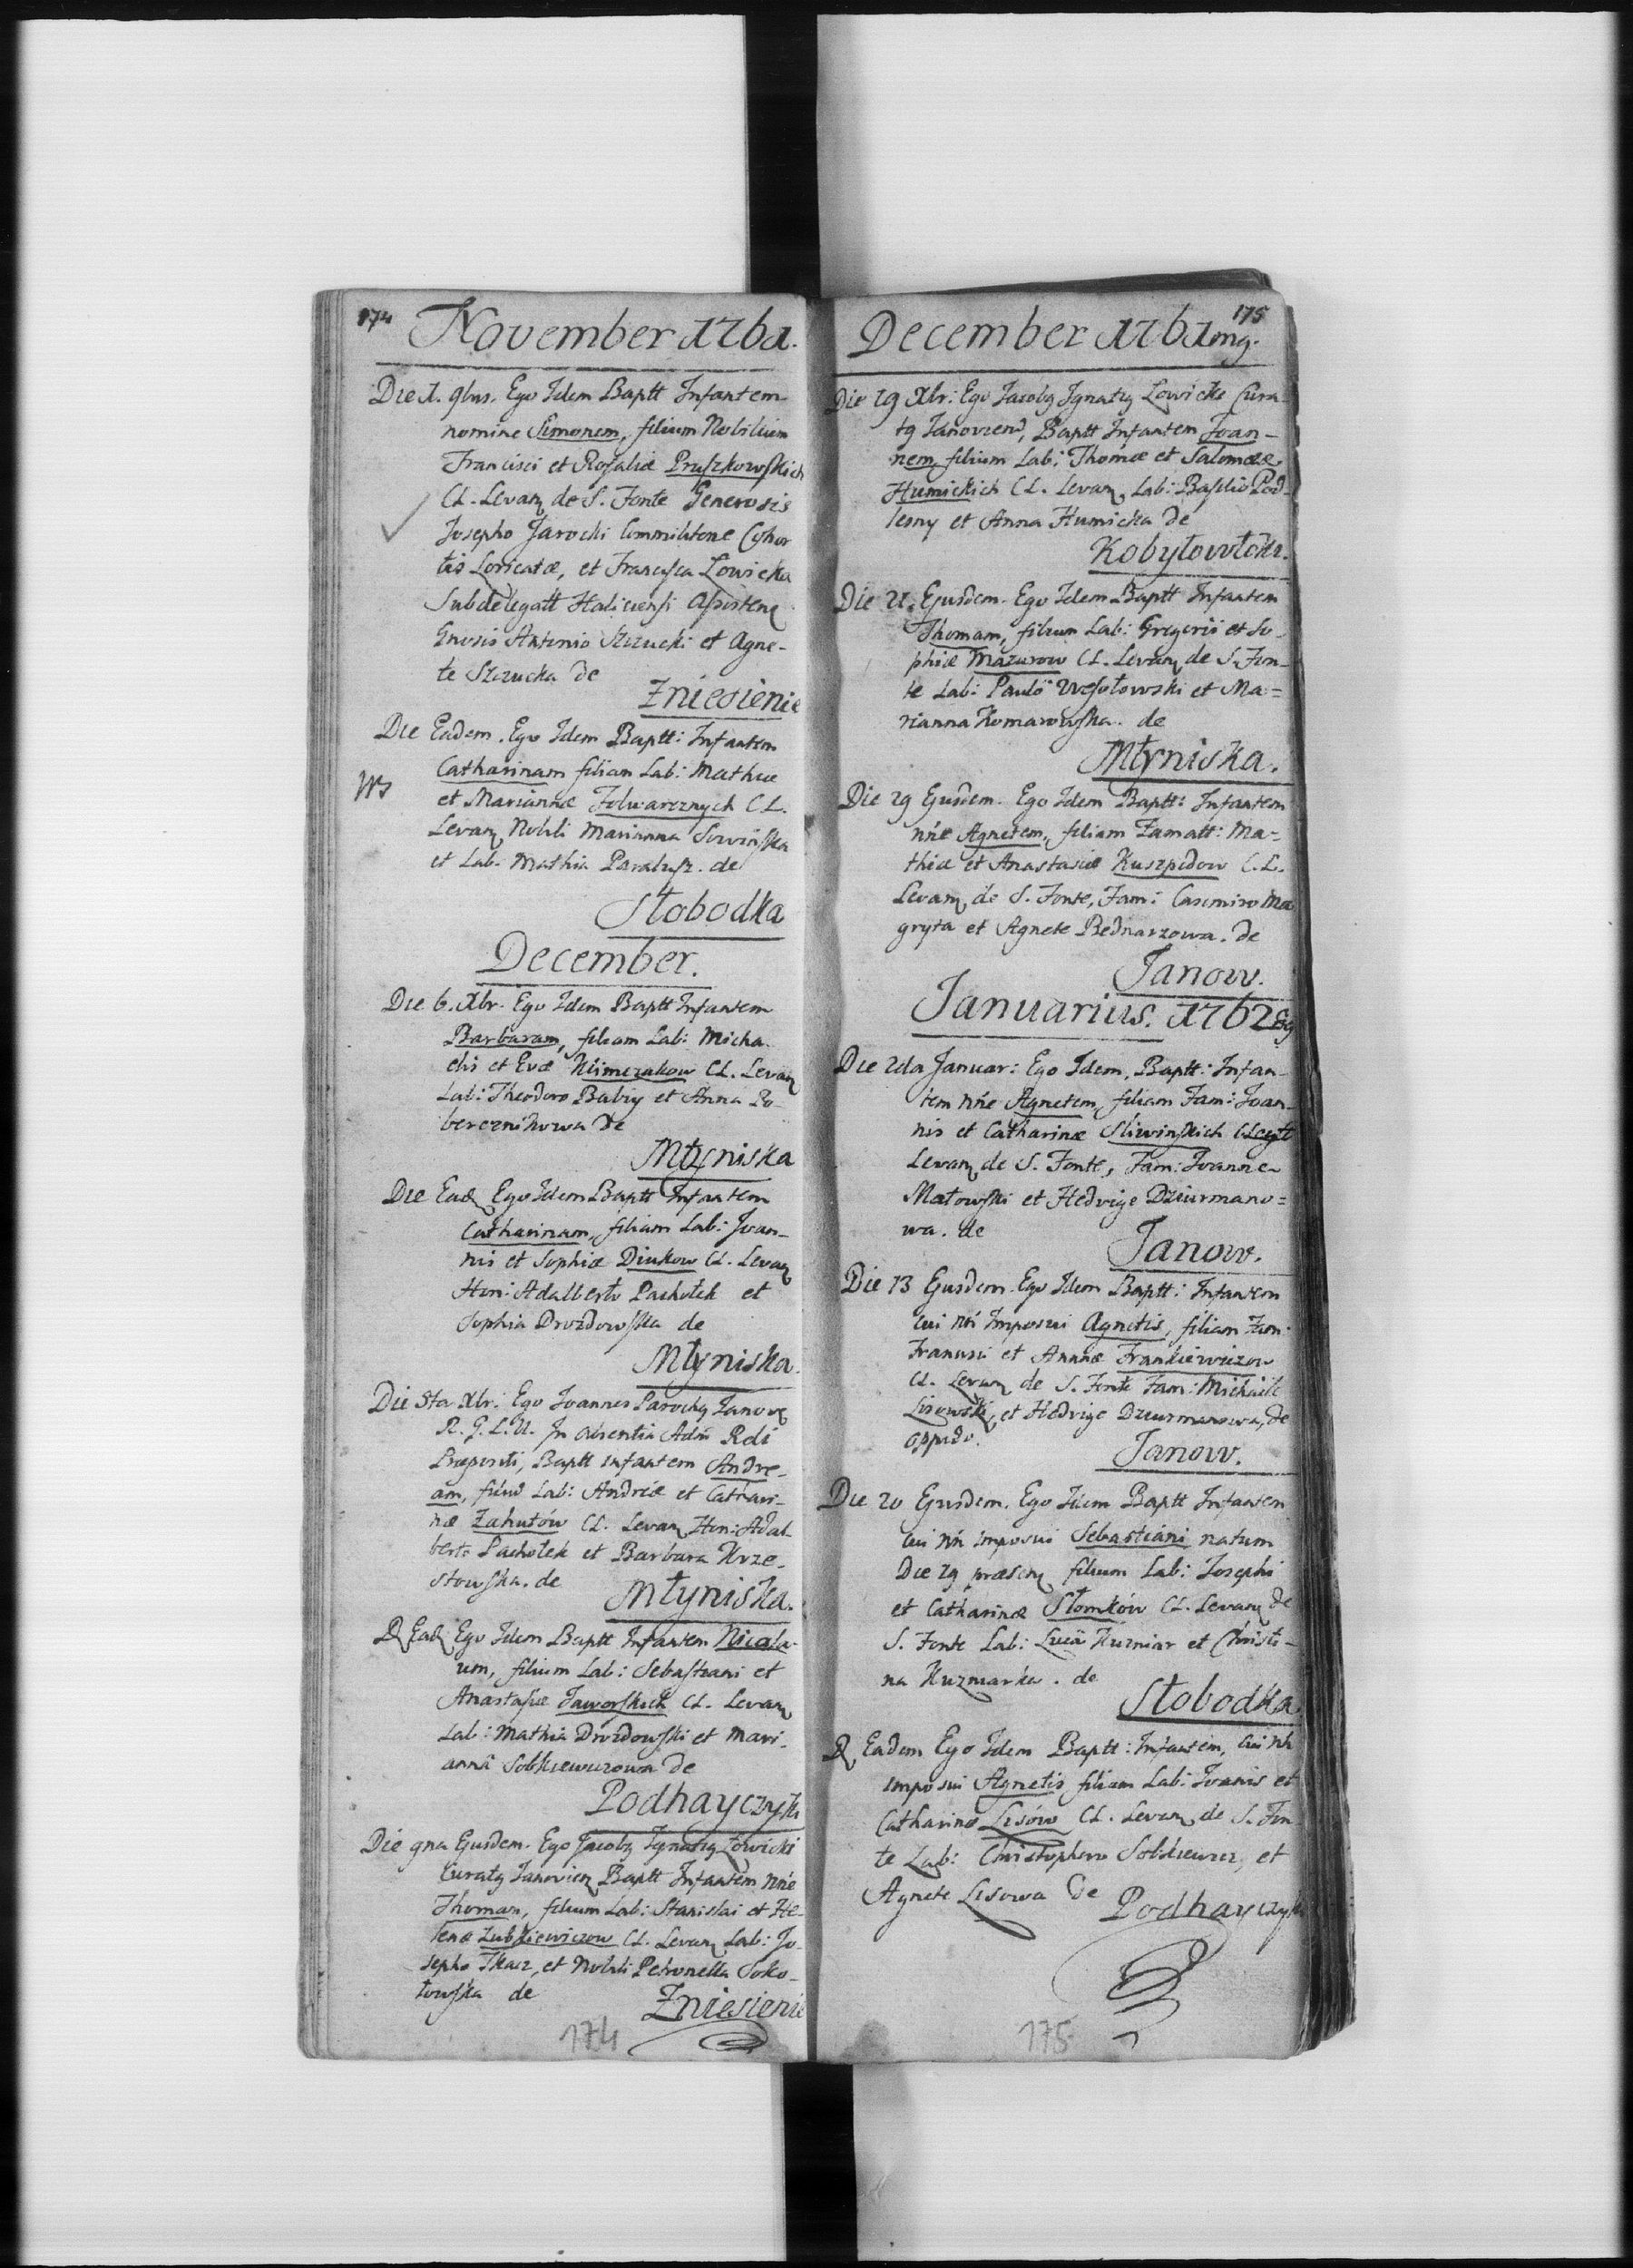 174
November 1761.
Die 1. 9bris. Ego Idem Baptt Infantem
nomine Simonem, filium Nobilium
Francisci et Rosaliæ Pruszkowskich
CL. Levan de S. Fonte Generosis
Josepho Jarocki Commilitone Cohor
tis Loricatæ, et Francisca Lowicka
Subdelegatt Haliciensi Assisten
Gnosis Antonio Szczucki et Agne-
te Szczucka de
Zniesienie
Die Eadem. Ego Idem Baptt: Infantem
Catharinam filiam Lab: Mathiæ
et Mariannæ Folwarcznych C L.
Levan Nobili Marianna Sowinska
et Lab. Mathia Paralusz. de
Słobodka
December.
Die 6. Xbr. Ego Idem Baptt Infantem
Barbaram, filiam Lab: Micha
elis et Evæ Klimczakow CL. Levan
Lab: Theodoro Babiy et Anna Po
bereznikowa de
Młyniska
Die Ead Ego Idem Baptt Infantem
Catharinam, filiam Lab: Joan-
nis et Sophiæ Diukow CL. Levan
Hon: Adalberto Pachołek et
Sophia Drozdowska de
Młyniska.
Die 8ta Xbr. Ego Joannes Parochy Janov
R. G. L. U. In absentia Adm Rdi
Præpositi, Baptt infantem Andre-
am, filiũ Lab: Andreæ et Cathari-
næ Zahutów CL. Levan Hon: Adal-
berto Pachołek et Barbara Krze-
stowska. de
Młyniska.
D Ead Ego Idem Baptt Infantem Nicola-
um, filium Lab: Sebastiani et
Anastasiæ Jaworskich CL. Levan
Lab: Mathia Drozdowski et Mari-
anna Sobkiewiczowa de
Podhayczyki
Die 9na Ejusdem. Ego Jacoby Ignaty Lowicki
Curaty Janovien Baptt Infantem Nñe
Thomam, filium Lab: Stanislai et He-
lenæ Lubkiewiczow CL. Levan Lab: Jo-
sepho Tkacz, et Nobili Petronella Soko-
łowska de
Zniesienie
174
175
December 1761 my.
Die 19 Xbr: Ego Jacoby Ignaty Lowicki Cura
ty Janovien, Baptt Infantem Joan-
nem, filium Lab: Thomæ et Salomeæ
Humickich CL. Levan, Lab: Basilio Pod-
lesny et Anna Humicka de
Kobyłowłoki.
Die 21. Ejusdem. Ego Idem Baptt Infantem
Thomam, filium Lab: Gregorii et So-
phiæ Mazurow CL. Levan de S. Fon-
te Lab: Paulo Wesołowski et Ma=
rianna Komarowska. de
Młyniska.
Die 29 Ejusdem. Ego Idem Baptt: Infantem
nñe Agnetem, filiam Famatt: Ma=
thiæ et Anastasiæ Kuszpidow C. L.
Levan de S. Fonte, Fam: Casimiro Ma
gryta et Agnete Bednarzowa. de
Janow.
Januarius. 1762
Die 2da Januar: Ego Idem, Baptt: Infan-
tem Nñe Agnetem, filiam Fam: Joan-
nis et Catharinæ Sliwinskich
Levan de S. Fonte, Fam: Joanne
Matowski et Hedvige Dziurmano=
wa. de
Janow.
Die 13 Ejusdem. Ego Idem Baptt: Infantem
cui nñ imposui Agnetis, filiam Fam:
Francisci et Annæ Frankiewiczow
CL. Levan de S. Fonte Fam: Michaile
Lisowski, et Hedvige Dziurmanowa, de
oppido.
Janow.
Die 20 Ejusdem. Ego Idem Baptt Infantem
cui nñ imposui Sebastiani natum
Die 19 præsen filium Lab: Josephi
et Catharinæ Słomków CL. Levan de
S. Fonte Lab: Luca Kuzniar et Christi-
na Kuzniarka. de
Słobodka
D Eadem Ego Idem Baptt: Infantem, Cui nñ
imposui Agnetis filiam Lab: Joanis et
Catharinæ Lisów CL. Levan de S. Fon
te Lab: Christophoro Sobkiewicz, et
Agnete Lisowa de
Podhayczyki
175